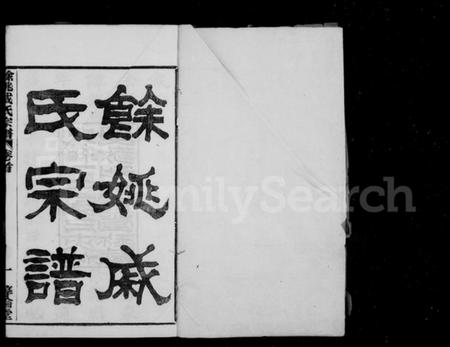 餘姚戚
氏宗譜
餘姚戚氏宗譜 卷首
一
FamilySearch